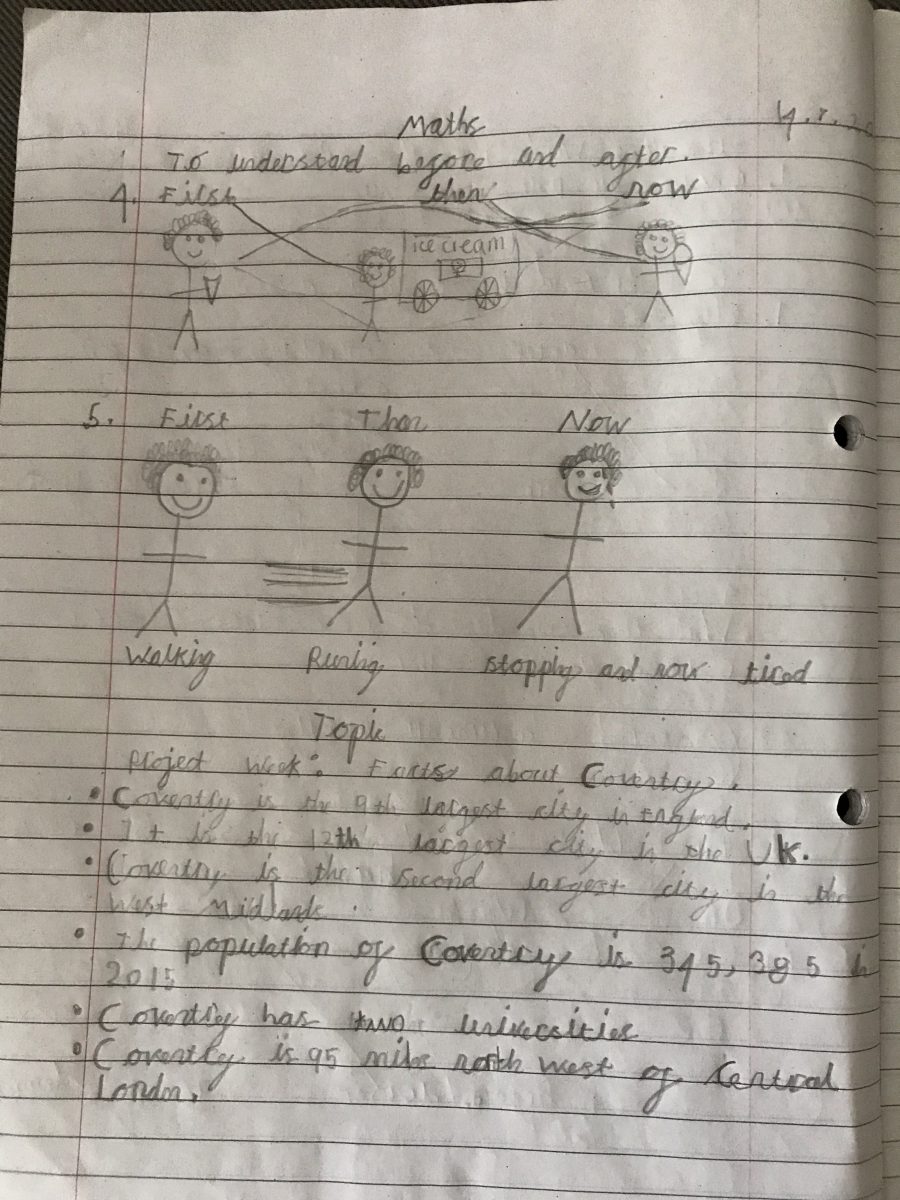 Maths
To understand before and after.
4. First then now
ice cream
5. First Then Now
Walking Runig stopping and now tired
Topic
Project week: Facts about Coventry.
• Coventry is the 9th largest city in England.
• It is the 12th largest city in the UK.
• Coventry is the second largest city in the
West Midlands.
• The population of Coventry is 345,385 in
2015
• Coventry has two universities
• Coventry is 95 miles north west of Central
London.